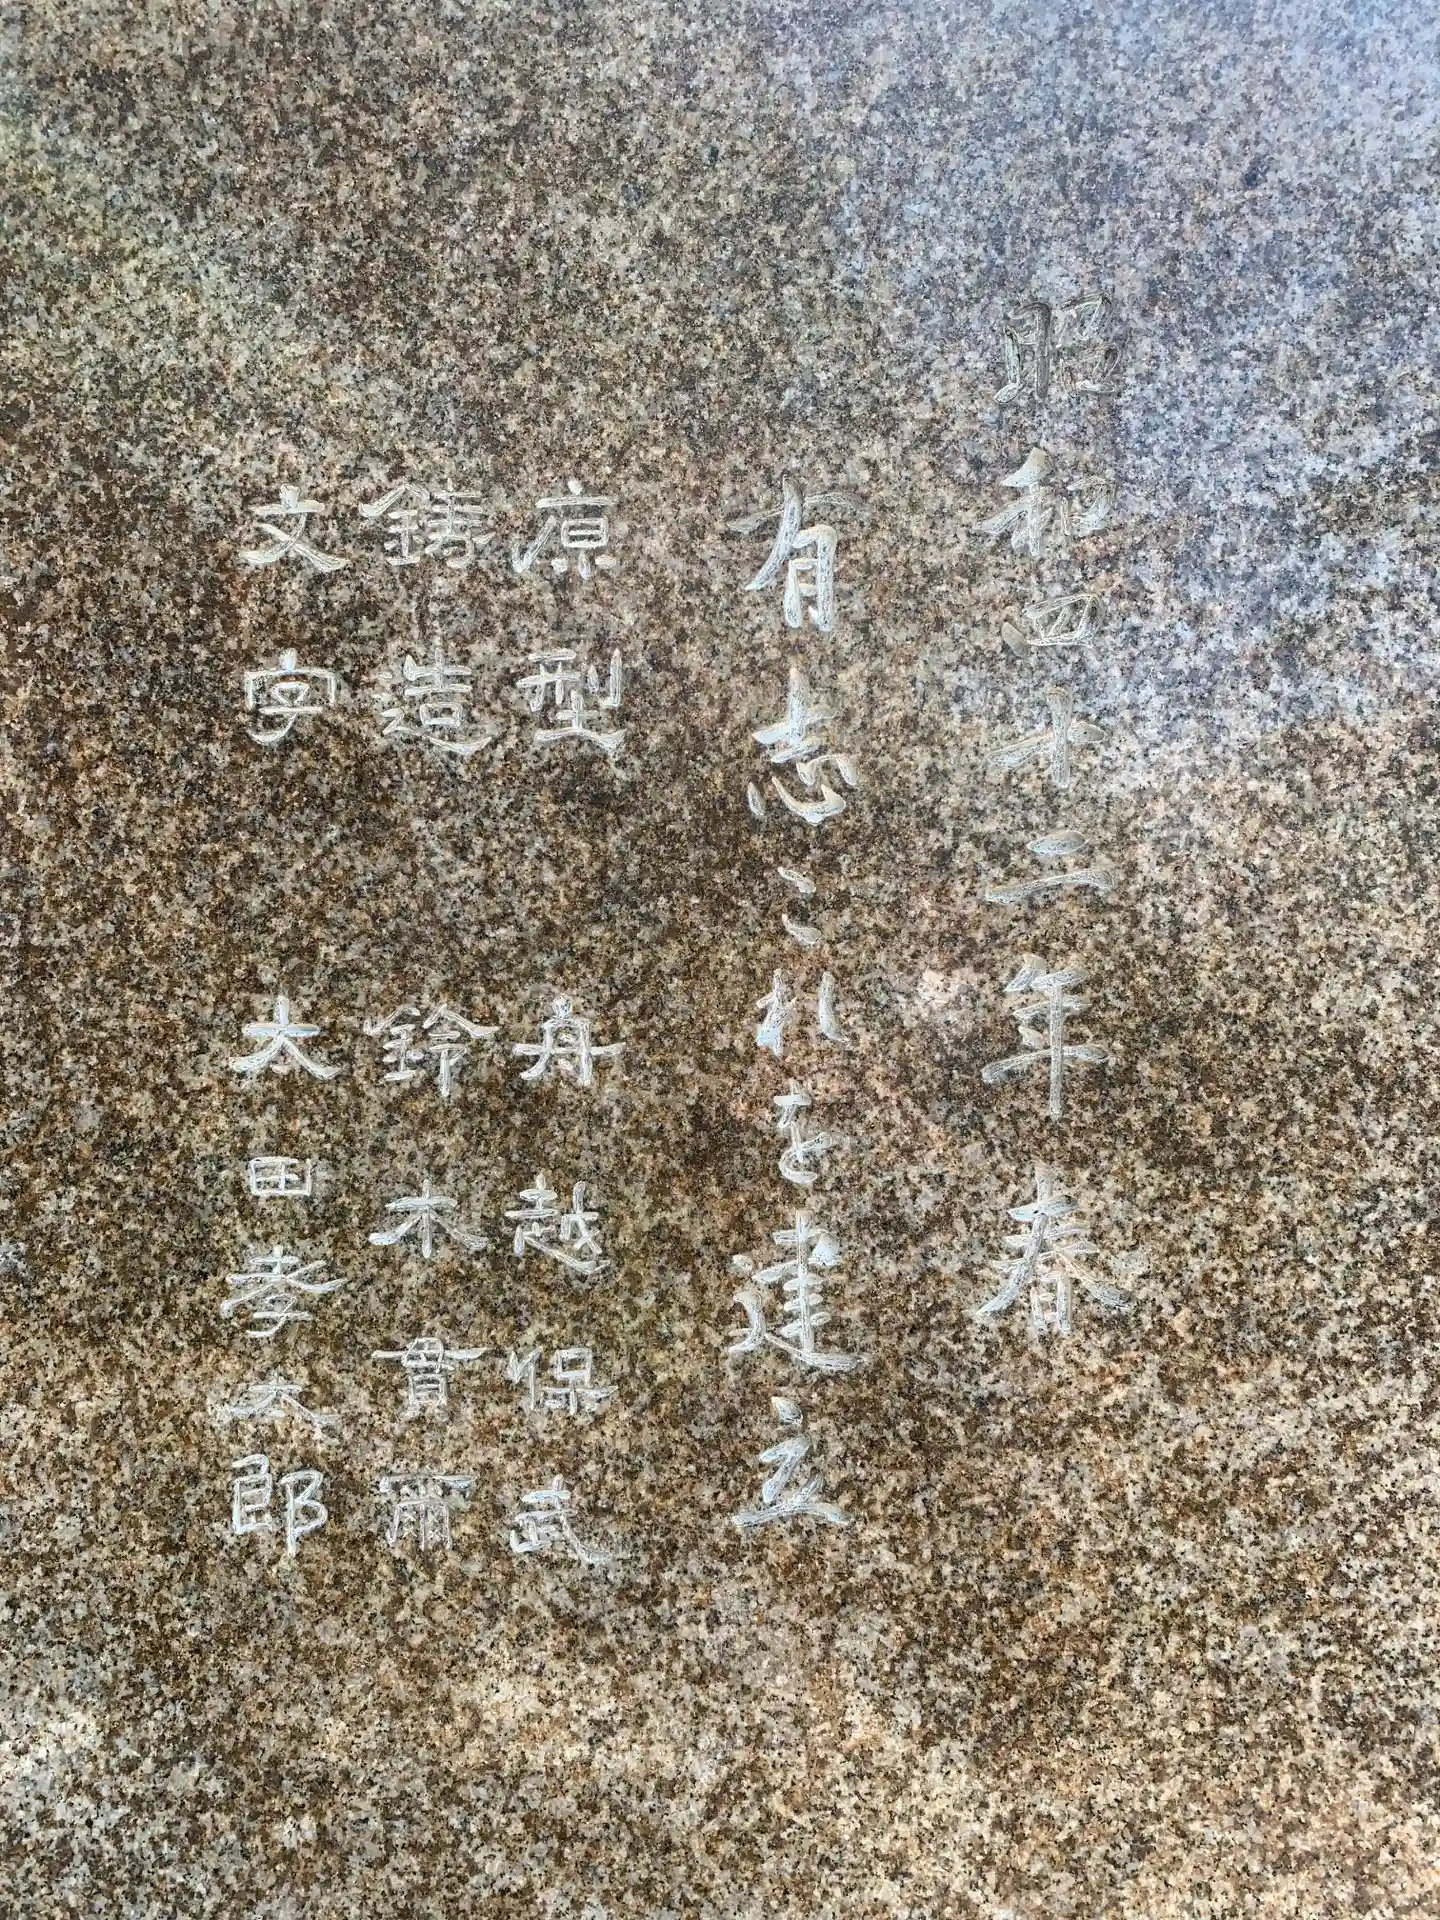 昭和四十二年春
有志これを建立
原型　舟越保武
鋳造　鈴木貫爾
文字　太田孝太郎